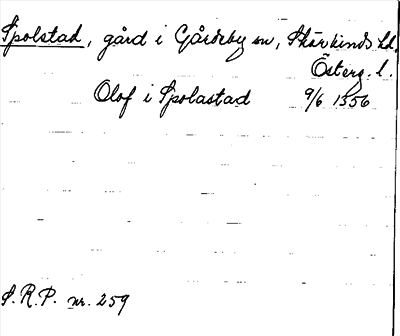 Spolstad, gård i Gårdeby sn, Skärkinds hd,
Österg. l.
Olof i Spolastad 9/6 1356
S.R.P. nr. 259